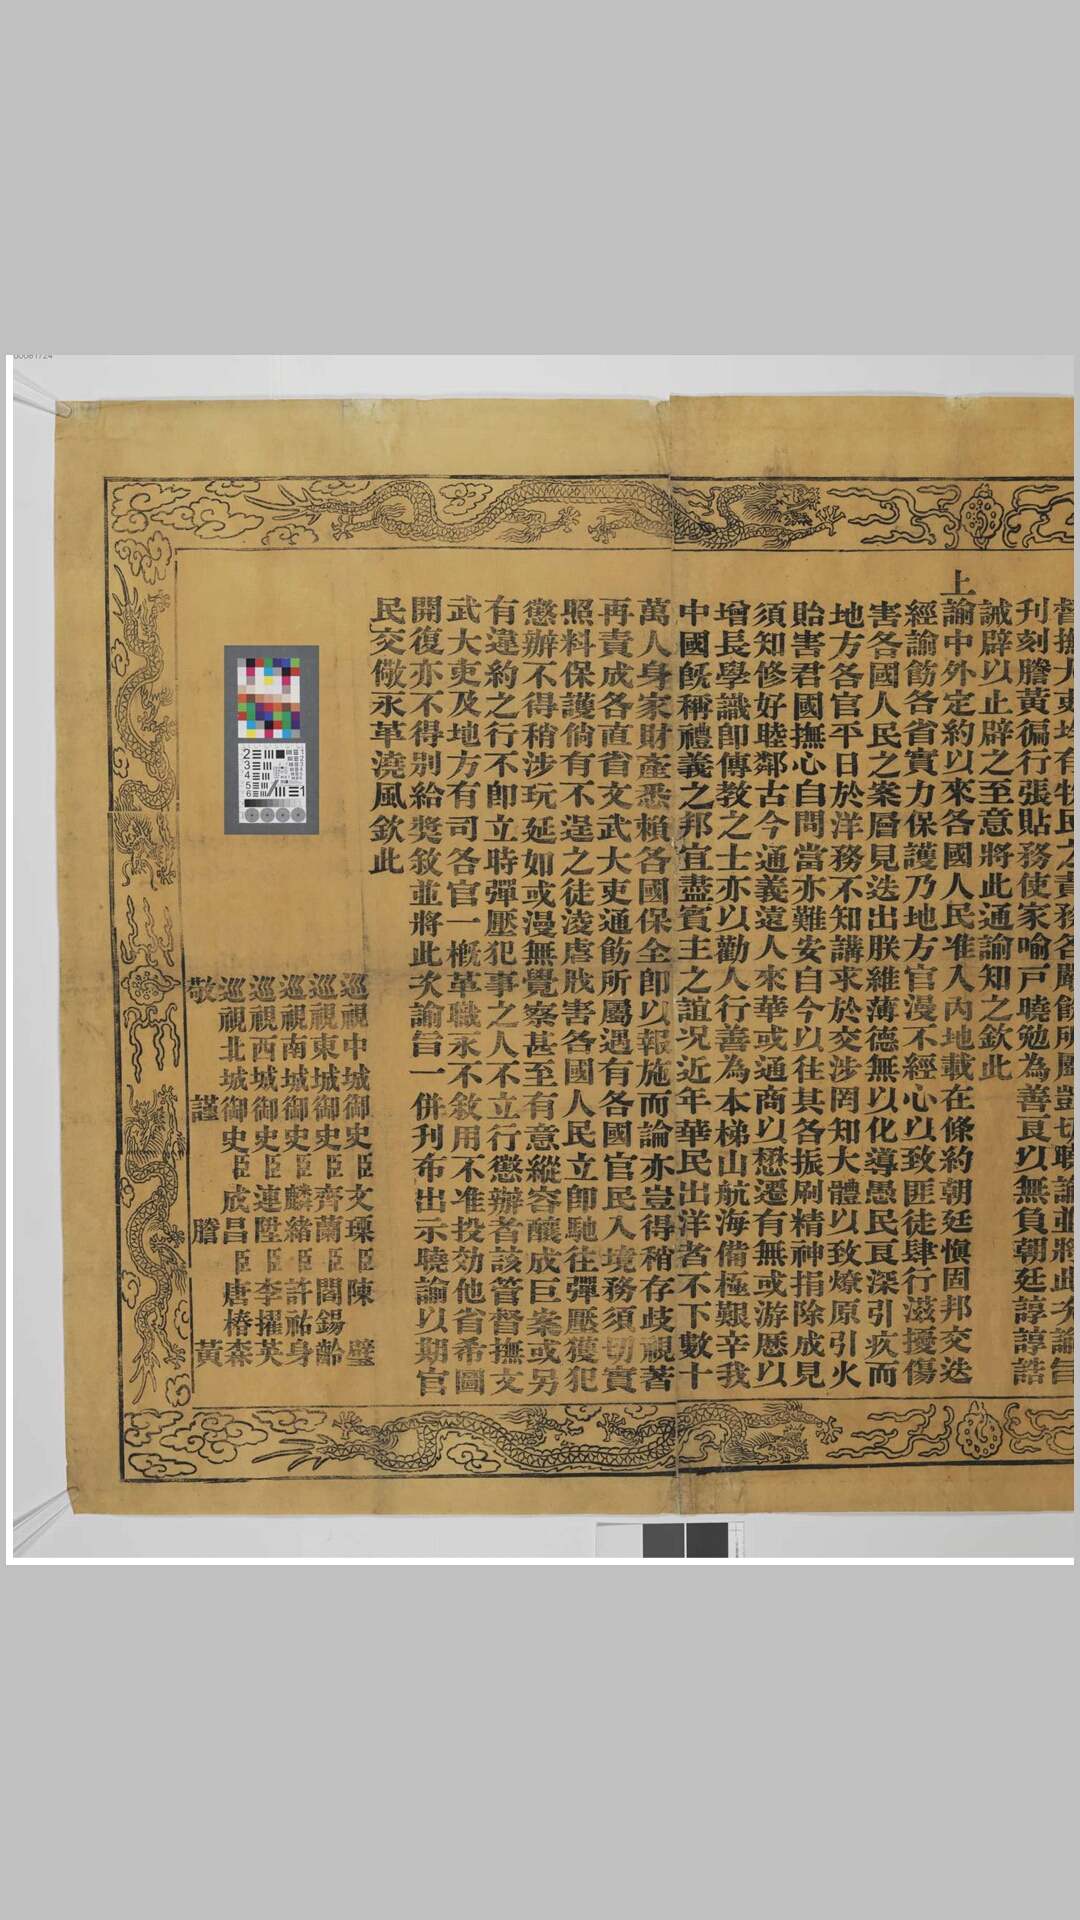 督撫大吏均有牧民之責務各嚴飭所屬剴切曉諭並將此次諭旨
刊刻謄黃徧行張貼務使家喻戶曉勉為善良以無負朝廷諄諄誥
誡辟以止辟之至意將此通諭知之欽此
上諭中外定約以來各國人民准入內地載在條約朝廷愼固邦交迭
經諭飭各省實力保護乃地方官漫不經心以致匪徒肆行滋擾傷
害各國人民之案層見迭出朕維薄德無以化導愚民良深引疚而
地方各官平日於洋務不知講求於交涉罔知大體以致燎原引火
貽害君國撫心自問當亦難安自今以往其各振刷精神捐除成見
須知修好睦鄰古今通義遠人來華或通商以懋遷有無或游歷以
增長學識卽傳教之士亦以勸人行善為本梯山航海備極艱辛我
中國旣稱禮義之邦宜盡賓主之誼况近年華民出洋者不下數十
萬人身家財產悉賴各國保全卽以報施而論亦豈得稍存歧視著
再責成各直省文武大吏通飭所屬遇有各國官民入境務須切實
照料保護倘有不逞之徒淩虐戕害各國人民立卽馳往彈壓獲犯
懲辦不得稍涉玩延如或漫無覺察甚至有意縱容釀成巨案或另
有違約之行不卽立時彈壓犯事之人不立行懲辦者該管督撫文
武大吏及地方有司各官一槪革職永不敘用不准投効他省希圖
開復亦不得別給獎敘並將此次諭旨一併刊布出示曉諭以期官
民交儆永革澆風欽此
巡視中城御史臣文瑮臣陳璧
巡視東城御史臣齊蘭臣閻錫齡
巡視南城御史臣麟緒臣許祐身
巡視西城御史臣連陞臣李擢英
巡視北城御史臣成昌臣唐椿森
敬謹謄黃